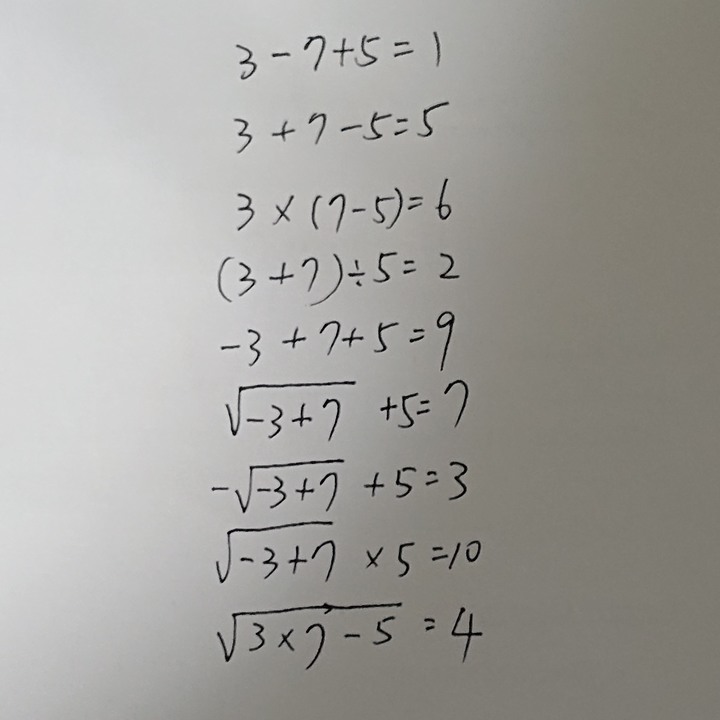 3-7+5=1
3+7-5=5
3×(7-5)=6
(3+7)÷5=2
-3+7+5=9
√(-3+7) +5=7
-√(-3+7) +5=3
√(-3+7) ×5=10
√(3×7-5) =4